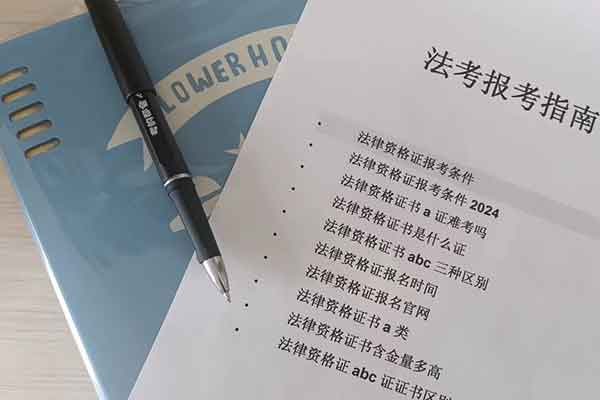 LOWER HO
法考报考指南
法律资格证报考条件
法律资格证报考条件 2024
法律资格证书 a 证难考吗
法律资格证书是什么证
法律资格证书 abc 三种区别
法律资格证报名时间
法律资格证报名官网
法律资格证书 a 类
法律资格证书含金量多高
法律资格证 abc 证证书区别